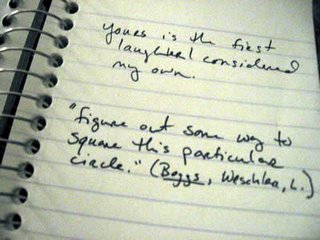 Yours is the first
laughter I considered
my own.
"figure out some way to
square this particular
circle." (Boggs, Weschler, L.)